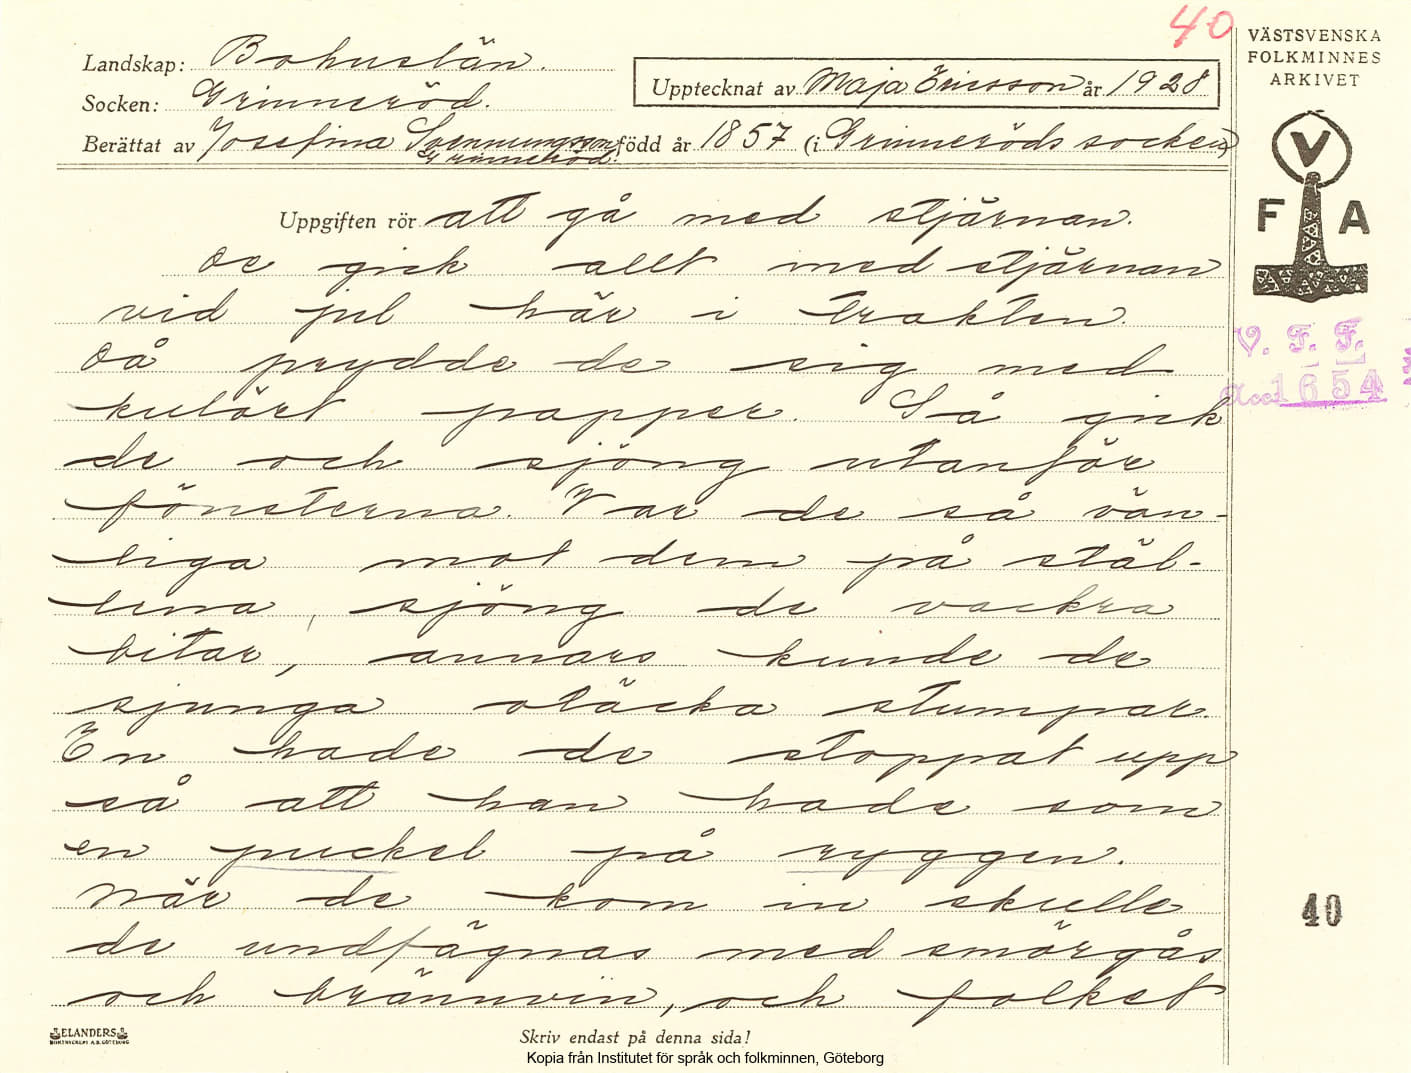 40
VÄSTSVENSKA
FOLKMINNES
ARKIVET
Landskap: Bohuslän.
Upptecknat av Maja Ericsson år 1928
Socken: Grinneröd.
Berättat av Josefina Svenningsson född år 1857 (i Grinneröds socken)
Grinneröd.
V
F A
Uppgiften rör att gå med stjärnan.
De gick allt med stjärnan
vid jul här i trakten.
Då prydde de sig med
kulört papper. Så gick
de och sjöng utanför
fönsterna. Var de så vän-
liga mot dem på stäl-
lena, sjöng de vackra
bitar, annars kunde de
sjunga otäcka stumpar.
En hade de stoppat upp
så att han hade som
en puckel på ryggen.
När de kom in skulle
de undfägnas med smörgås
och brännvin, och folket
V. F. F.
Acc. 1654
40
ELANDERS
BOKTRYCKERI A.B. GÖTEBORG
Skriv endast på denna sida!
Kopia från Institutet för språk och folkminnen, Göteborg